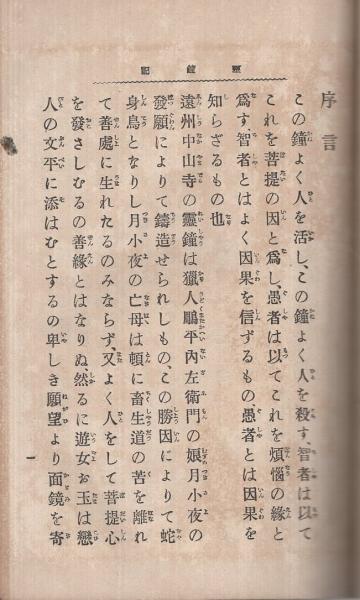 靈鐘記
序言
この鐘よく人を活し、この鐘よく人を殺す、智者は以て
これを菩提の因と爲し、愚者は以てこれを煩惱の緣と
爲す、智者とはよく因果を信ずるもの、愚者とは因果を
知らざるもの也
遠州中山寺の靈鐘は獵人鵰平内左衞門の娘月小夜の
發願によりて鑄造せられしもの、この勝因によりて蛇
身鳥となりし月小夜の亡母は頓に畜生道の苦を離れ
て善處に生れたるのみならず、又よく人をして菩提心
を發さしむるの善緣とはなりぬ、然るに遊女お玉は戀
人の文平に添はむとするの卑しき願望より面鏡を寄
一